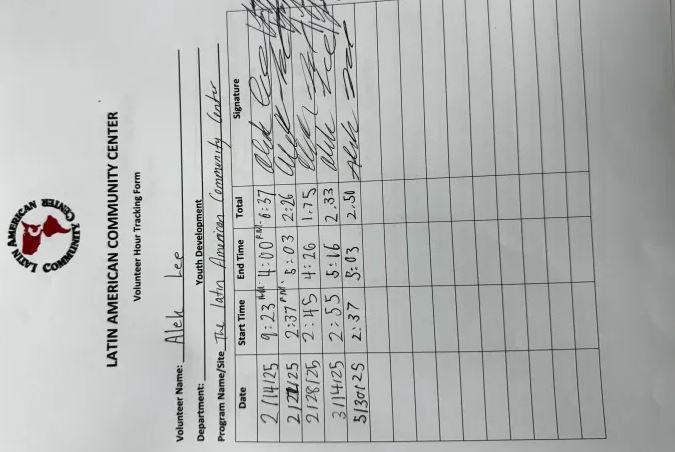 LATIN AMERICAN
COMMUNITY CENTER
LATIN AMERICAN COMMUNITY CENTER
Volunteer Hour Tracking Form
Volunteer Name: Alek Lee
Department: Youth Development
Program Name/Site The latin American Community Center
Date Start Time End Time Total Signature
2/14/25 9:23 AM. 4:00 P.M. 6:37 Alek Lee
2/21/25 2:37 P.M. 5:03 2:26 Alek
2/28/25 2:45 4:26 1.75
3/14/25 2:55 5:16 2.33 Alek Lee
5/30/25 2:37 5:03 2.50 Alek